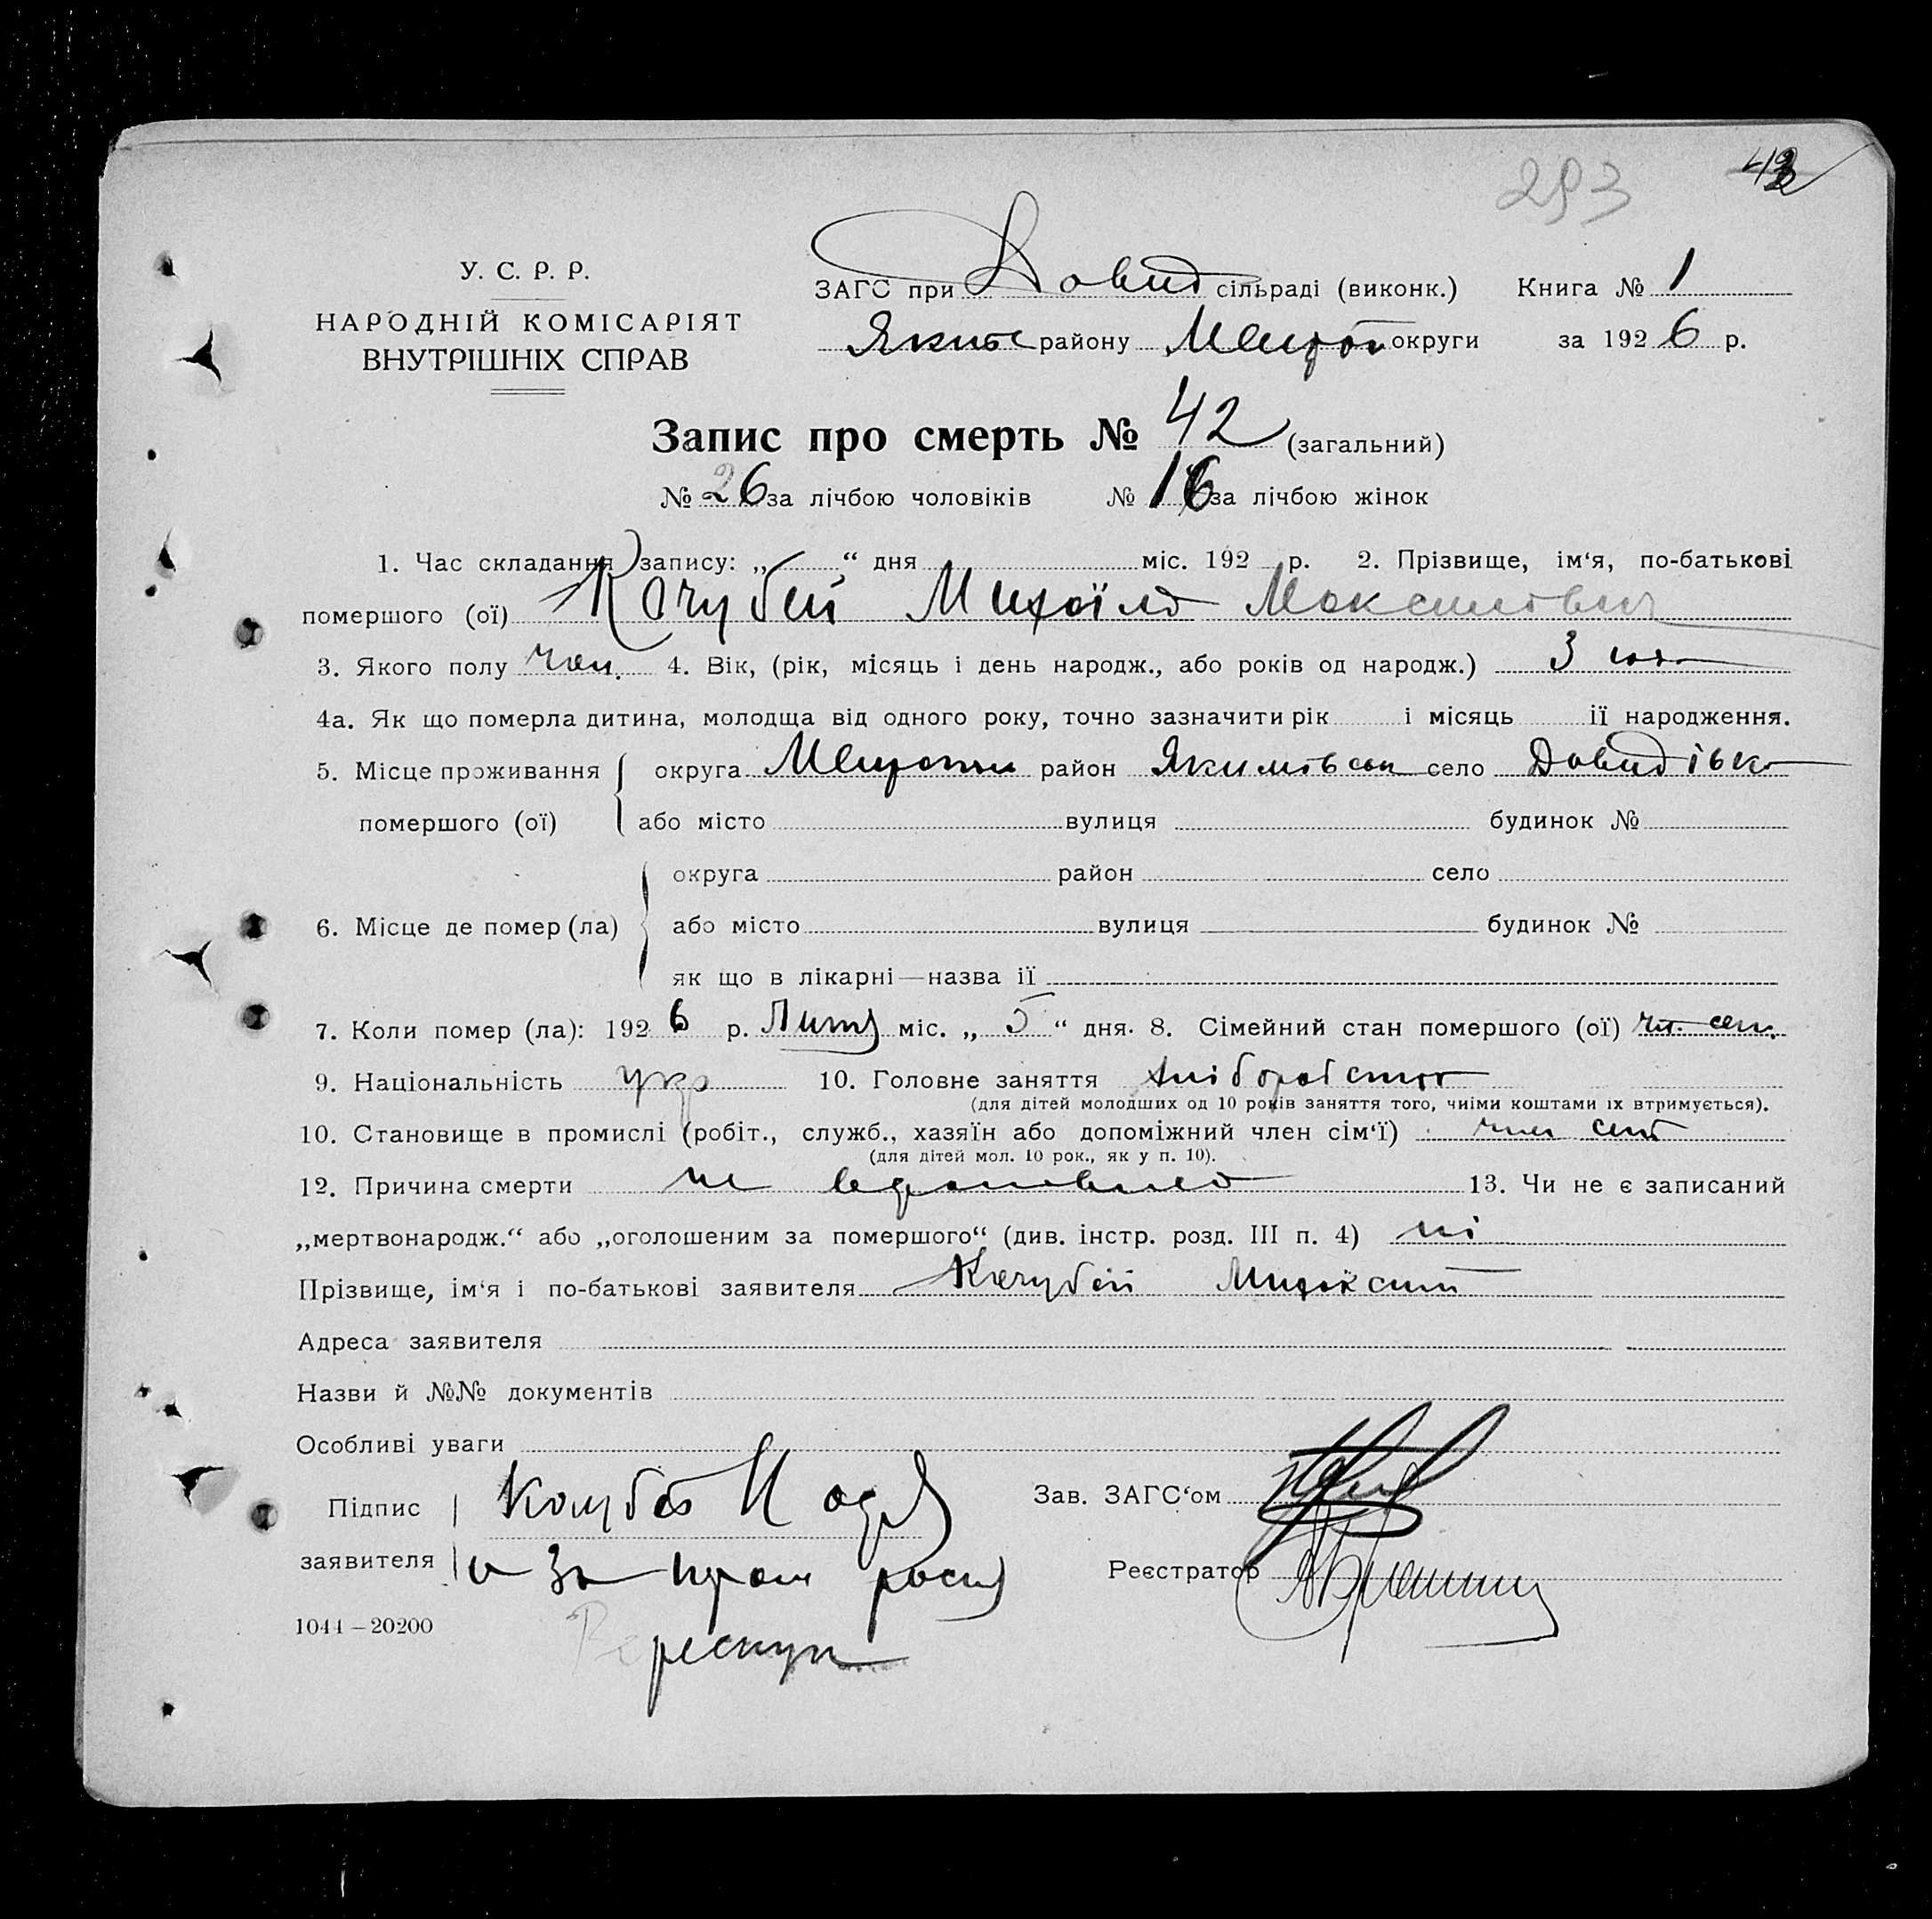 293 42
У. С. Р. Р.
НАРОДНІЙ КОМІСАРІЯТ
ВНУТРІШНІХ СПРАВ
ЗАГС при Довид сільраді (виконк.) Книга № 1
Яким району Меліт округи за 1926 р.
Запис про смерть № 42 (загальний)
№ 26 за лічбою чоловіків № 16 за лічбою жінок
1. Час складання запису: „ “ дня міс. 192 р. 2. Прізвище, ім‘я, по-батькові
помершого (ої) Кочубей Михайло Максимович
3. Якого полу чол. 4. Вік, (рік, місяць і день народж., або років од народж.) 3
4а. Як що померла дитина, молодща від одного року, точно зазначити рік і місяць ії народження.
5. Місце проживання округа Меліто район Якимівськ село Давидівка
помершого (ої) або місто вулиця будинок №
округа район село
6. Місце де помер (ла) або місто вулиця будинок №
як що в лікарні—назва ії
7. Коли помер (ла): 1926 р. міс. „ 5 “ дня. 8. Сімейний стан помершого (ої) чл. сем.
9. Національність укр 10. Головне заняття хліборобство
(для дітей молодших од 10 років заняття того, чиїми коштами їх втримується).
10. Становище в промислі (робіт., служб., хазяїн або допоміжний член сім‘ї) член сем
(для дітей мол. 10 рок., як у п. 10).
12. Причина смерти не 13. Чи не є записаний
„мертвонародж.“ або „оголошеним за помершого“ (див. інстр. розд. III п. 4) ні
Прізвище, ім‘я і по-батькові заявителя Кочубей
Адреса заявителя
Назви й №№ документів
Особливі уваги
Підпис Кочубей Зав. ЗАГС‘ом
заявителя Реєстратор
1044—20200